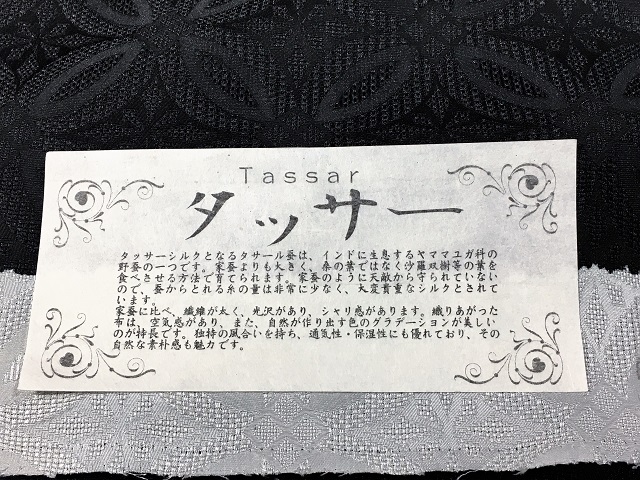 Tassar
タッサー
タッサーシルクとなるタサール蚕は、インドに生息するヤママユガ科の
野蚕の一つです。家蚕よりも大きく、桑の葉ではなく沙羅双樹等の葉を
食べさせる方法で育てられます。家蚕のように天敵から守られていない
ので、蚕からとれる糸の量は非常に少なく、大変貴重なシルクとされて
います。
家蚕に比べ、繊維が太く、光沢があり、シャリ感があります。織りあがった
布は、空気感があり、また、自然が作り出す色のグラデーションが美しい
のが特長です。独特の風合いを持ち、通気性・保湿性にも優れており、その
自然な素朴感も魅力です。